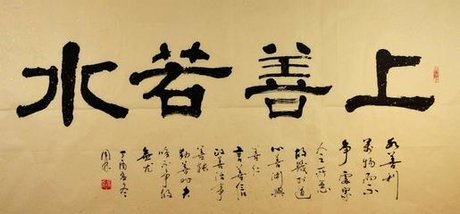 上善若水
水善利
萬物而不
争處衆
人之所惡
故幾於道
心善淵與
善仁
言善信
政善治事
善能
動善時夫
唯不争故
無尤
丁酉冬